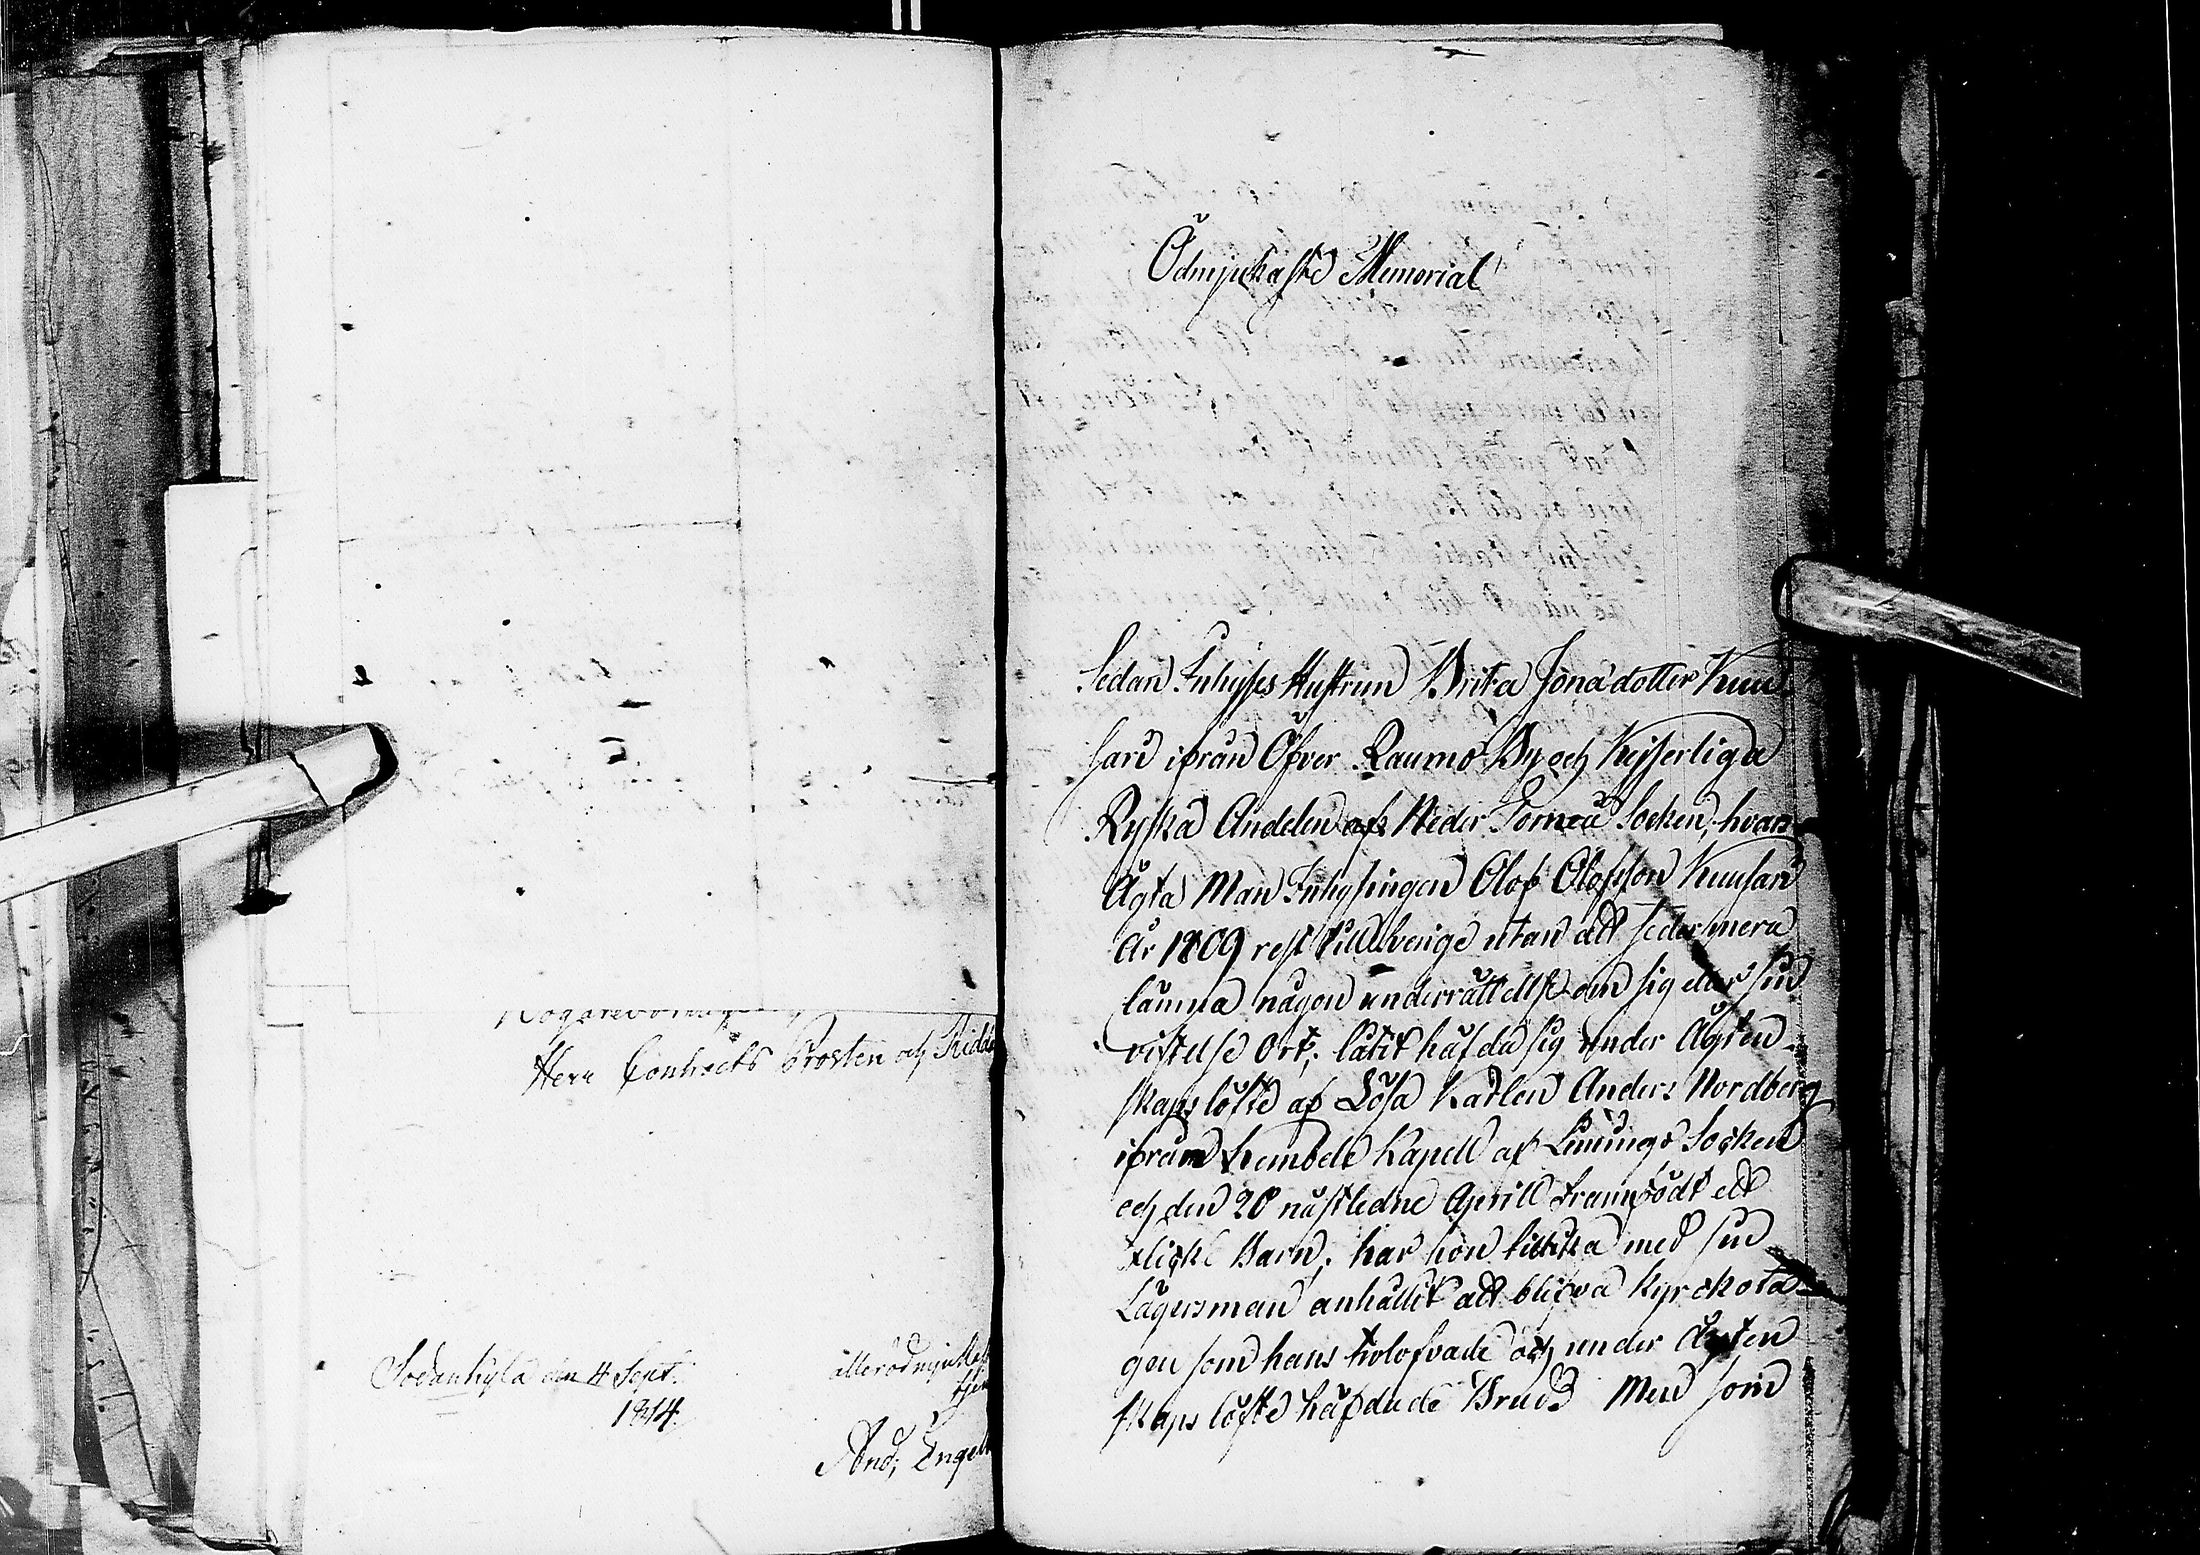 Herr Contracts Prosten och Ridd
Sodankylä den 4 Sept.
1814.
allerödmjukas
tjen
And; Engel
Ödmjukaste Memorial
Sedan Inhyses Hustrun Brita Jonådotter Kuu
sari ifrån Öfver Raumo By och Kejserliga
Ryska Andelen af Neder Torneå Socken, hvars
Ägta Man Inhysingen Olof Olofsson Kuusari
År 1809 rest till Sverige utan att sedermera
lämna någon underrättelse om sig eller sin
vistelse Ort; låtit häfda sig under Ägten
skaps löfte af Lösa Karlen Anders Nordberg
ifrån Kembele Kapell af Limingo Socken
och den 20 nästledne Aprill framfödt ett
flicke Barn; har hon tillika med sin
Lägersman anhållit att blifva Kyrckota
gen som hans trolofvade och under Ägten
skaps löfte häfdade Brud. Men som